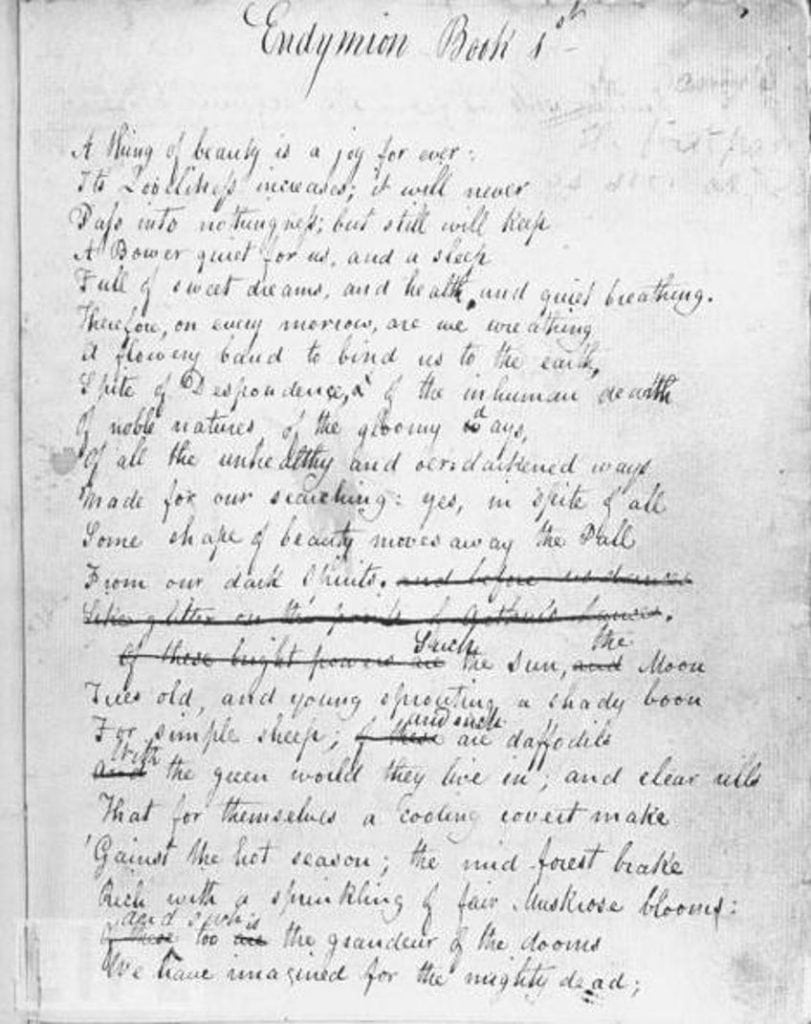 Endymion Book 1st
A thing of beauty is a joy for ever:
Its Loveliness increases; it will never
Pass into nothingness; but still will keep
A Bower quiet for us, and a sleep
Full of sweet dreams, and health, and quiet breathing.
Therefore, on every morrow, are we wreathing
A flowery band to bind us to the earth,
Spite of Despondence, of the inhuman dearth
Of noble natures, of the gloomy days,
Of all the unhealthy and oer-darkened ways
Made for our searching: yes, in spite of all
Some shape of beauty moves away the Pall
From our dark Spirits. and before us dances
Like glitter on the points of Arthur's Lances.
Such the
Of these bright powers are the Sun, and Moon
Trees old, and young sprouting a shady boon
and such
For simple sheep; of these are daffodils
With
and the green world they live in; and clear rills
That for themselves a cooling covert make
'Gainst the hot season; the mid forest brake
Rich with a sprinkling of fair Muskrose blooms:
and such is
Of these too are the grandeur of the dooms
We have imagined for the mighty dead;